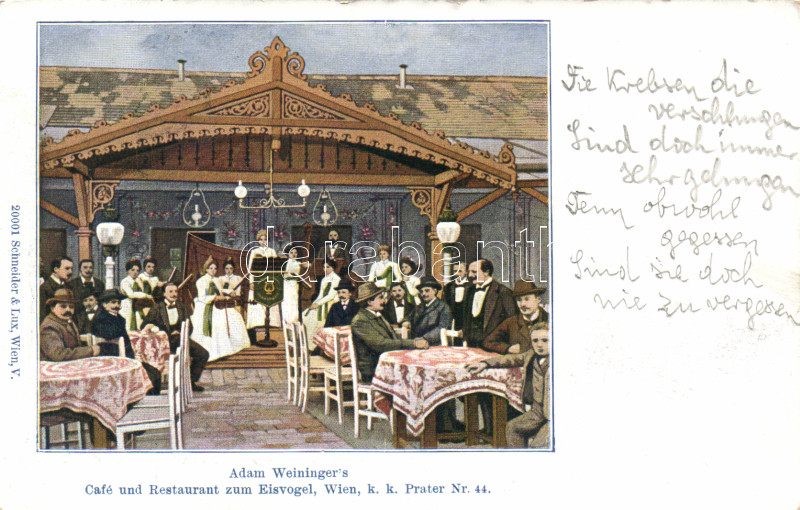 Die Krebsen die
verschlungen
Sind doch immer
sehr gelungen
Denn obwohl
gegessen
Sind sie doch
nie zu vergessen
20001 Schneider & Lux, Wien, V.
darabanth.com
Adam Weininger's
Café und Restaurant zum Eisvogel, Wien, k. k. Prater Nr. 44.